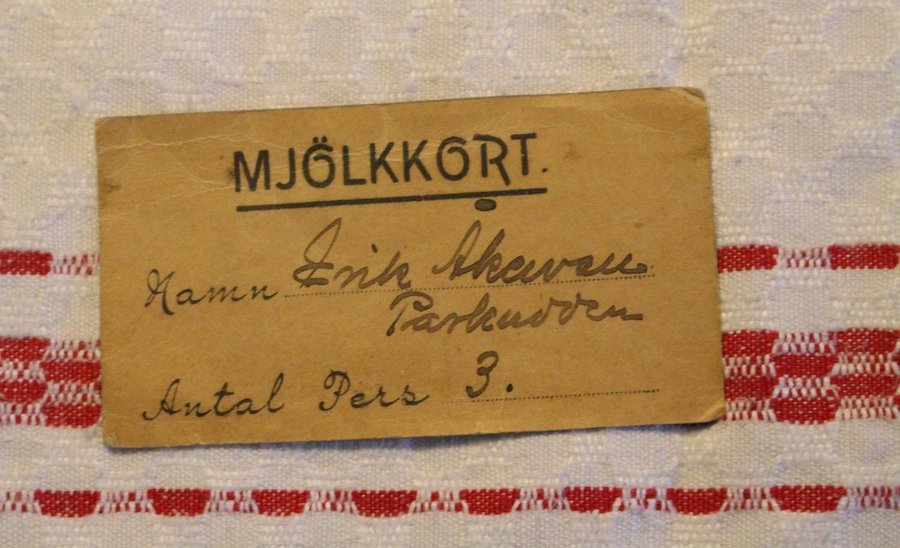 MJÖLKKORT.
Namn Erik Åkervall
Parkudden
Antal Pers 3.